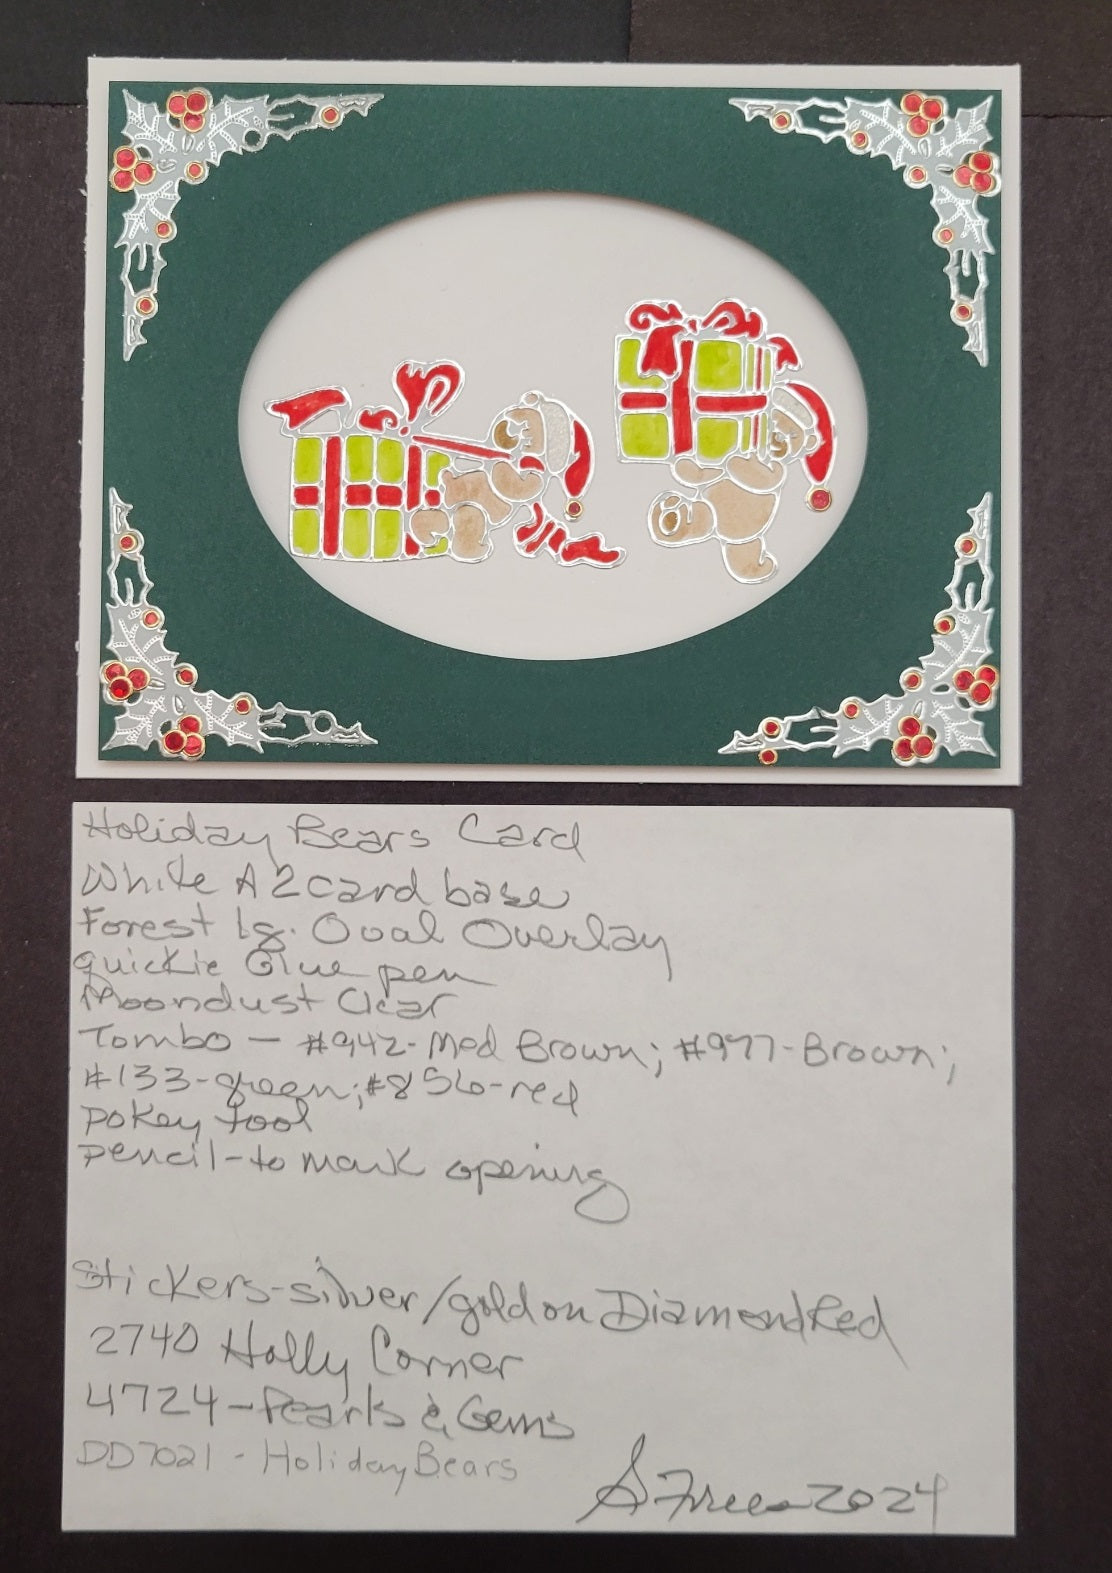 Holiday Bears Card
White A2 card base
Forest lg. Oval Overlay
quickie Glue pen
Moondust Clear
Tombo - #942-Med Brown; #977-Brown;
#133-green; #856-red
pokey tool
pencil-to mark opening
Stickers-silver/gold on Diamond Red
2740 Holly Corner
4724-Pearls & Gems
DD7021 - Holiday Bears
2024